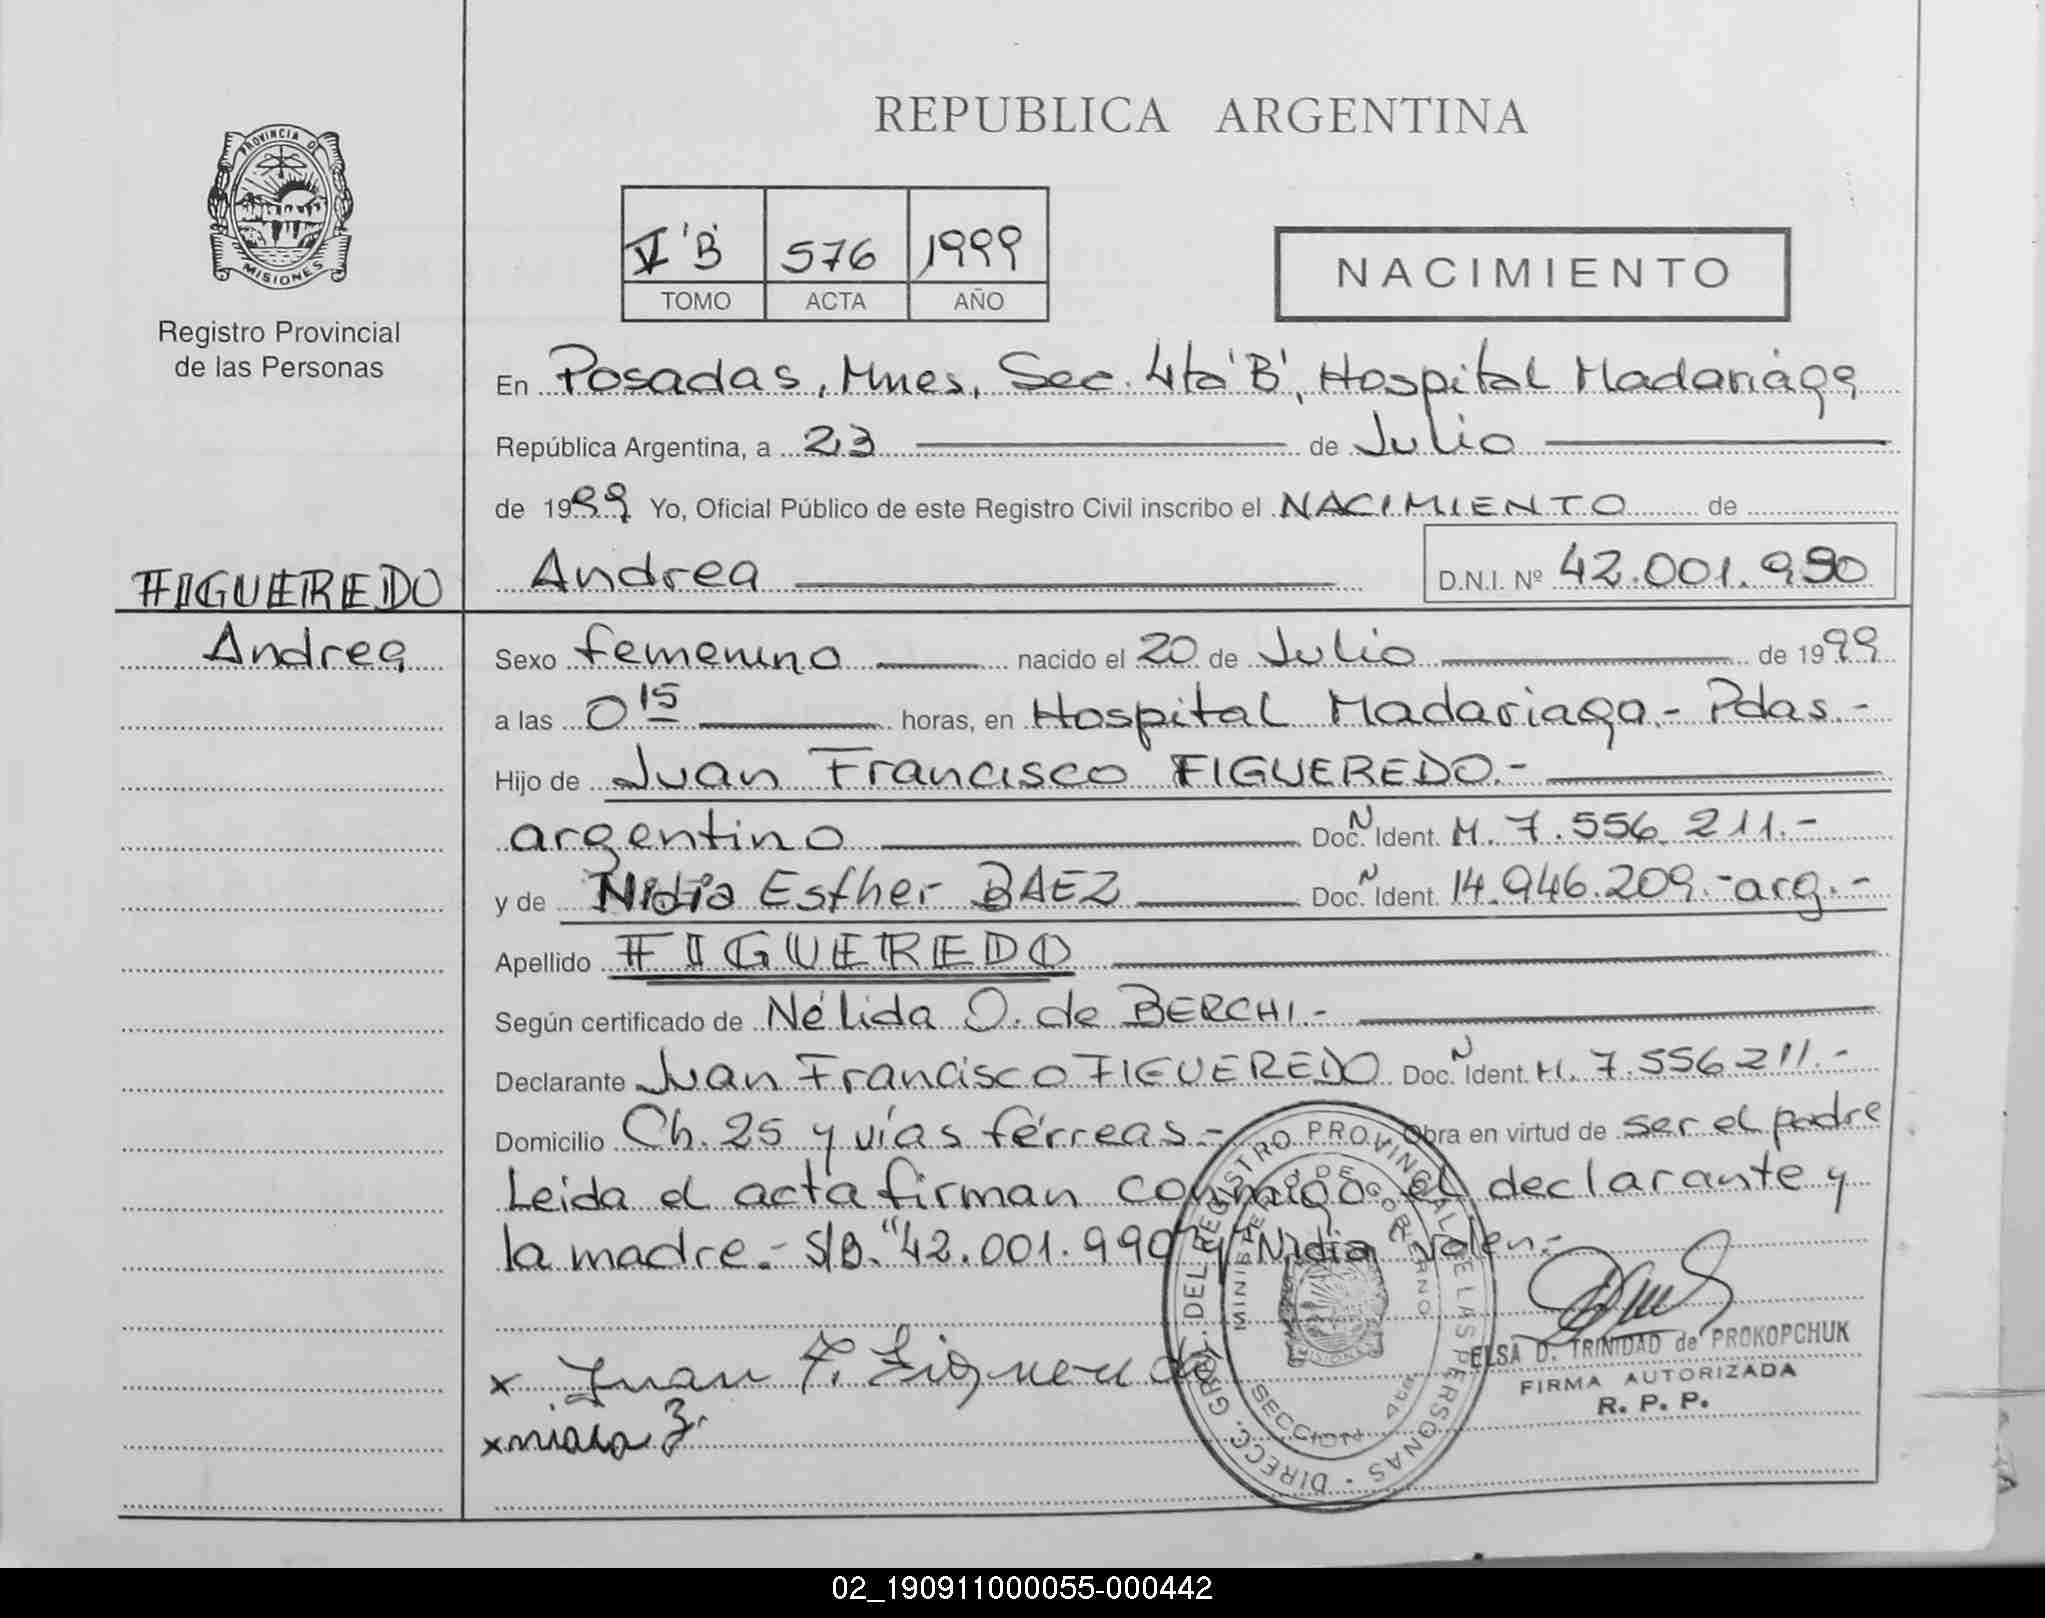 REPUBLICA ARGENTINA
PROVINCIA D
MISIONES
Registro Provincial
de las Personas
V 'B' 576 1999
TOMO ACTA AÑO
NACIMIENTO
En Posadas, Mnes, Sec. 4ta 'B', Hospital Madariaga
República Argentina, a 23 de Julio
de 1999 Yo, Oficial Público de este Registro Civil inscribo el NACIMIENTO de
Andrea D.N.I. Nº 42.001.990
FIGUEREDO
Andrea
Sexo femenino nacido el 20 de Julio de 1999
a las 0 15 horas, en Hospital Madariaga.- Pdas.-
Hijo de Juan Francisco FIGUEREDO.-
argentino Doc. N Ident. M. 7.556.211.-
y de Nidia Esther BAEZ Doc. N Ident. 14.946.209.-arg.-
Apellido FIGUEREDO
Según certificado de Nélida O. de BERCHI.-
Declarante Juan Francisco FIGUEREDO Doc. N Ident. M. 7.556211.-
Domicilio Ch. 25 y vías férreas.- Obra en virtud de ser el padre
Leida el acta firman conmigo el declarante y
la madre.- S/B. "42.001.990" y "Nidia" valen.-
x Juan F. Figueredo
x
DIRECC. GRAL. DEL REGISTRO PROVINCIAL DE LAS PERSONAS
MINISTERIO DE GOBIERNO
MISIONES
SECCION 4ta
ELSA D. TRINIDAD de PROKOPCHUK
FIRMA AUTORIZADA
R. P. P.
02_190911000055-000442